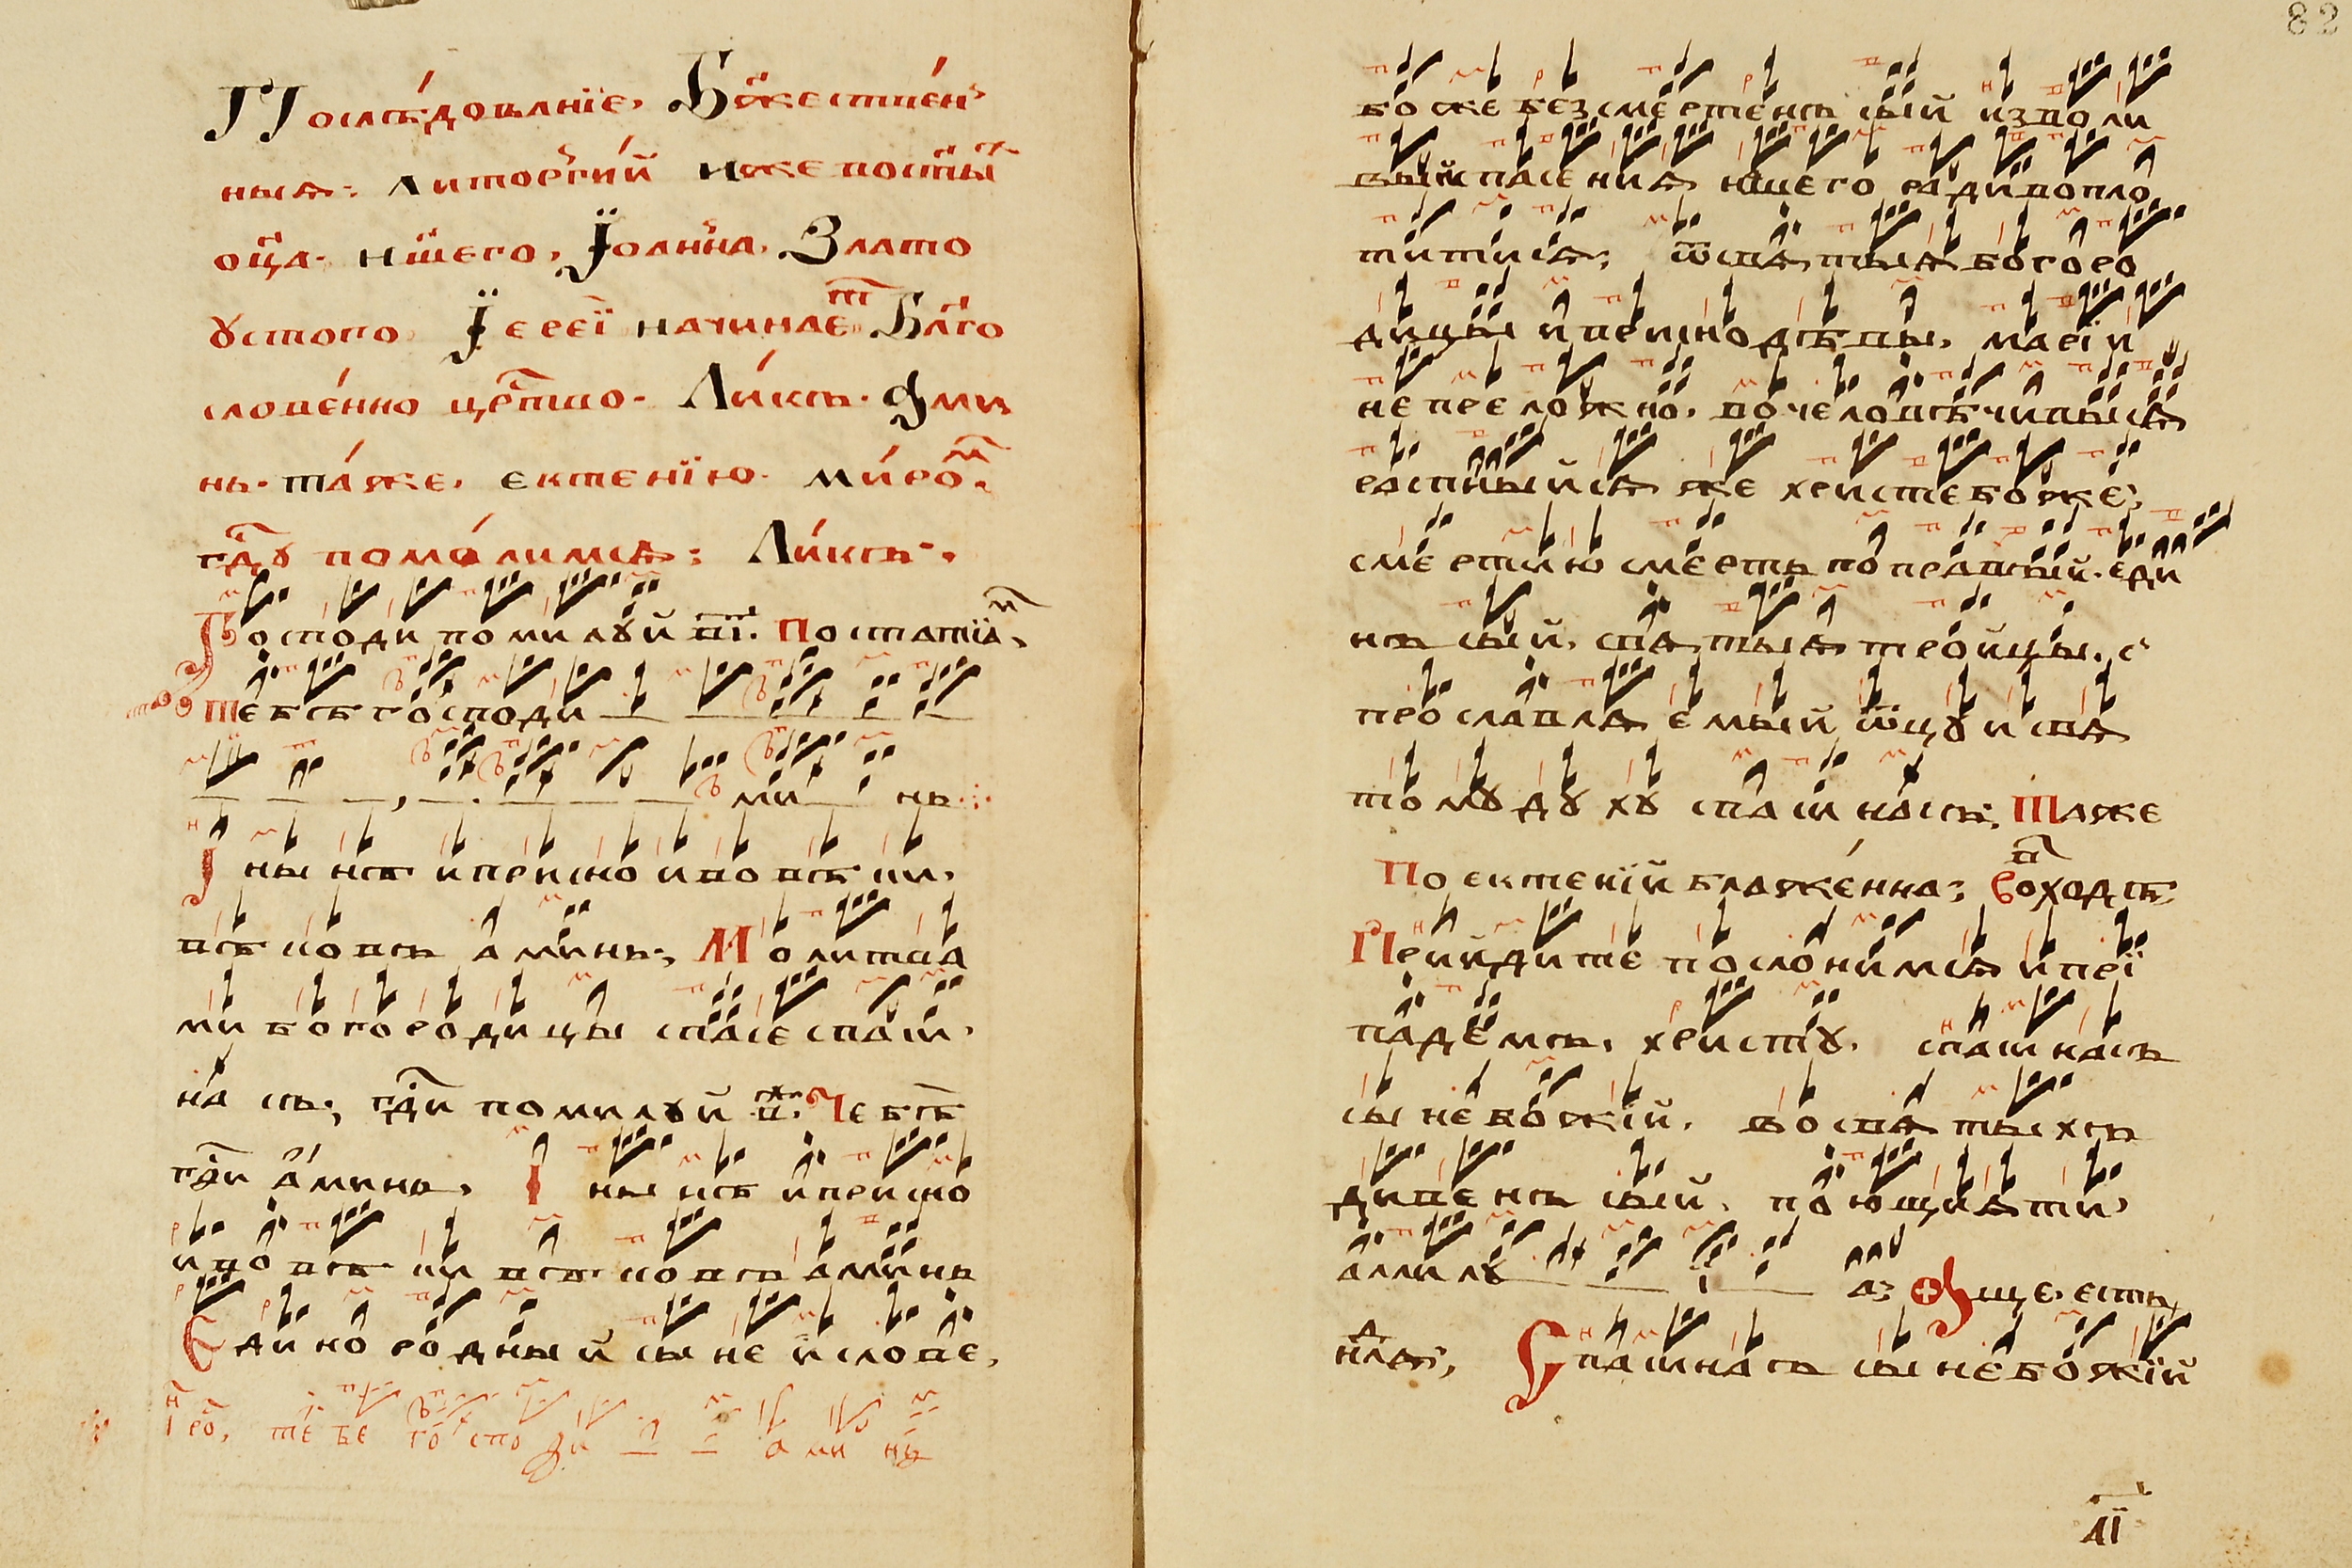 Послѣ́дованїе. Бж҃естве́н
ныѧ. Литоргі́й иже во ст҃ыⷯ
оц҃а н҃шего, Їоанна. Злато
ꙋстого Їерей начинаеⷮ Бл҃го
слове́нно цр҃тво. Ли́къ. Ами
нь. та́же. ектенїю. ми́роⷨ.
гдⷭ҇ꙋ помо́лимсѧ: Ли́къ.
Господи помилꙋй в҃і. По статїаⷨ,
тебѣ господи
ми нь
І ны нѣ и присно и во вѣ ки,
вѣ ковъ аминь; Молитва
ми богородицы спасе спаси
на съ; гдⷭ҇и помилꙋй в҃. Тебѣ
гдⷭ҇и аминь, І ны нѣ и присно
и во вѣ ки вѣ ковъ аминь
Единородный сы не и слове,
тебе го спо ди а ми нь
82
боже безсмертенъ сый изволи
вый спасениѧ н҃шего ради вопло
титисѧ; ѿ свѧтыѧ богоро
дицы и приснодѣвы. марїи
непреложно. вочеловѣчивыйсѧ
распныйсѧ же христе боже;
смертию смерть поправый. еди
нъ сый. свѧтыѧ троицы. с
прославлѧемый ѿцꙋ и свѧ
томꙋ дꙋхꙋ спаси насъ; Таже
По ектенїй блаже́нна; Во входѣ
Прийдите поклонимсѧ и прї
падемъ. христꙋ. спаси насъ
сы не божїй. во свѧтыхъ
дивенъ сый. поющиѧ ти
аллилꙋ а; Аще. есть
нлѧⷣ; Спаси насъ сы не божїй
а҃і